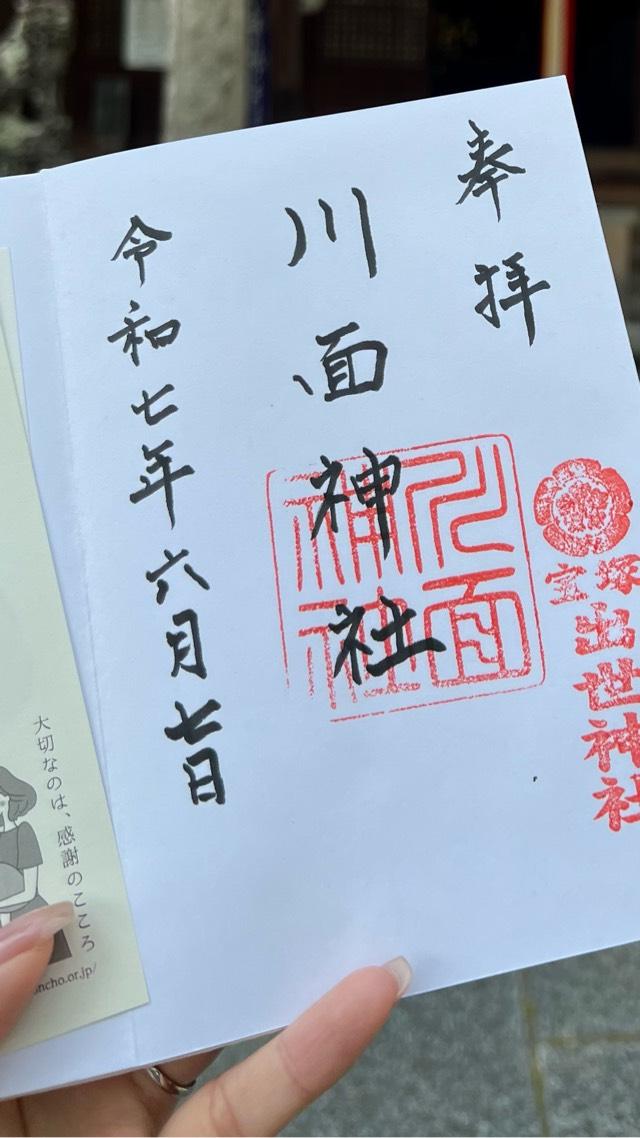 奉拝
宝塚
出世神社
川面神社
川面神社
令和七年六月七日
大切なのは、感謝のこころ
oncho.or.jp/